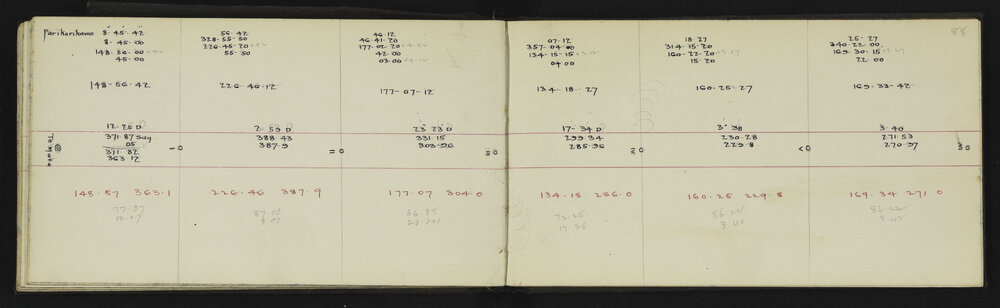 Parikarikawa 8·45·42
8·45·00
148·56·00
45·00
148-56-42
12·25 D
371·87 Sag
05
371·82
363·12
I
148·57 363·1
77·37
12·27
56·42
328·55·50
226·45·20
55·50
226·46·12
2·59 D
388·43
387·9
II
226·46 387·9
87·03
46·12
46·41·20
177·02·20
42·00
03·00
177-07-12
23 23 D
331·15
303·96
III
177·07 304·0
66·35
07·12
357·04·00
134·15·15
04·00
134-18-27
17-34 D
299·34
285·96
134·18 286·0
72·28
17·35
18·27
314·15·20
160·22·20
15·20
160·25·27
3·98
230·28
229·8
V
160·25 229·8
86·20
25·27
340·22·00
169·30·15
22·00
169·33·42
3·40
271·53
270·97
169·34 271·0
86·22
88